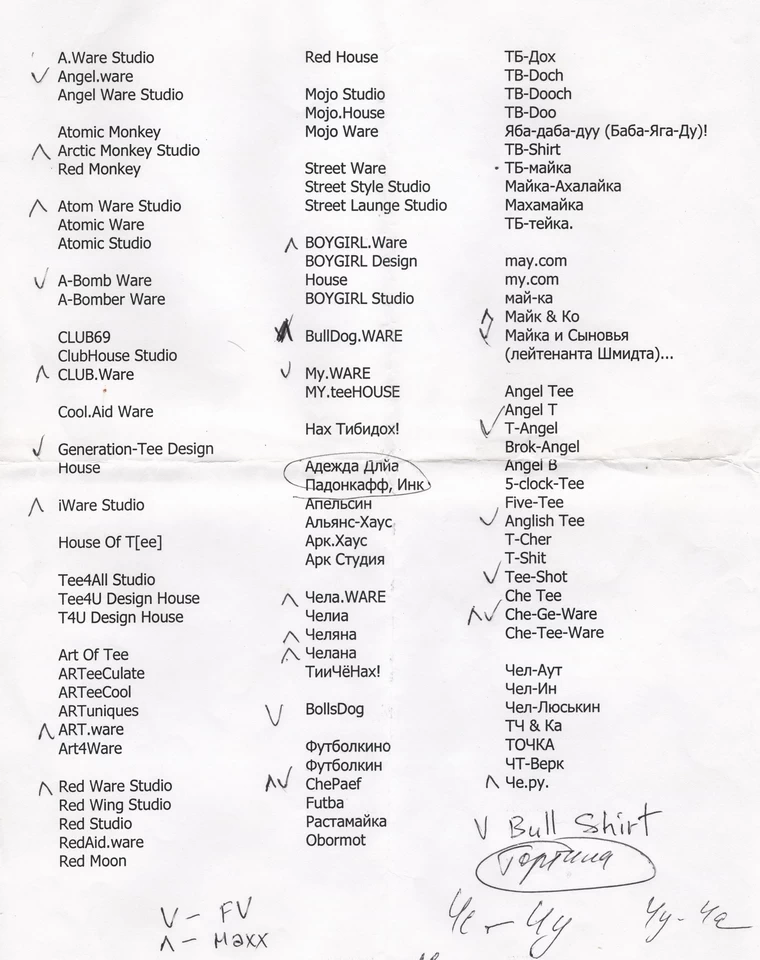 A.Ware Studio
Angel.ware
Angel Ware Studio
Atomic Monkey
Arctic Monkey Studio
Red Monkey
Atom Ware Studio
Atomic Ware
Atomic Studio
A-Bomb Ware
A-Bomber Ware
CLUB69
ClubHouse Studio
CLUB.Ware
Cool.Aid Ware
Generation-Tee Design
House
iWare Studio
House Of T[ee]
Tee4All Studio
Tee4U Design House
T4U Design House
Art Of Tee
ARTeeCulate
ARTeeCool
ARTuniques
ART.ware
Art4Ware
Red Ware Studio
Red Wing Studio
Red Studio
RedAid.ware
Red Moon
Red House
Mojo Studio
Mojo.House
Mojo Ware
Street Ware
Street Style Studio
Street Launge Studio
BOYGIRL.Ware
BOYGIRL Design
House
BOYGIRL Studio
BullDog.WARE
My.WARE
MY.teeHOUSE
Нах Тибидох!
Адежда Длйа
Падонкафф, Инк
Апельсин
Альянс-Хаус
Арк.Хаус
Арк Студия
Чела.WARE
Челиа
Челяна
Челана
ТииЧёНах!
BollsDog
Футболкино
Футболкин
ChePaef
Futba
Растамайка
Obormot
ТБ-Дох
TB-Doch
TB-Dooch
TB-Doo
Яба-даба-дуу (Баба-Яга-Ду)!
TB-Shirt
ТБ-майка
Майка-Ахалайка
Махамайка
ТБ-тейка.
may.com
my.com
май-ка
Майк & Ко
Майка и Сыновья
(лейтенанта Шмидта)...
Angel Tee
Angel T
T-Angel
Brok-Angel
Angel B
5-clock-Tee
Five-Tee
Anglish Tee
T-Cher
T-Shit
Tee-Shot
Che Tee
Che-Ge-Ware
Che-Tee-Ware
Чел-Аут
Чел-Ин
Чел-Люськин
ТЧ & Ка
ТОЧКА
ЧТ-Верк
Че.ру.
V Bull Shirt
V - FV
Λ - Maxx
Че - Чу
Чу - Че